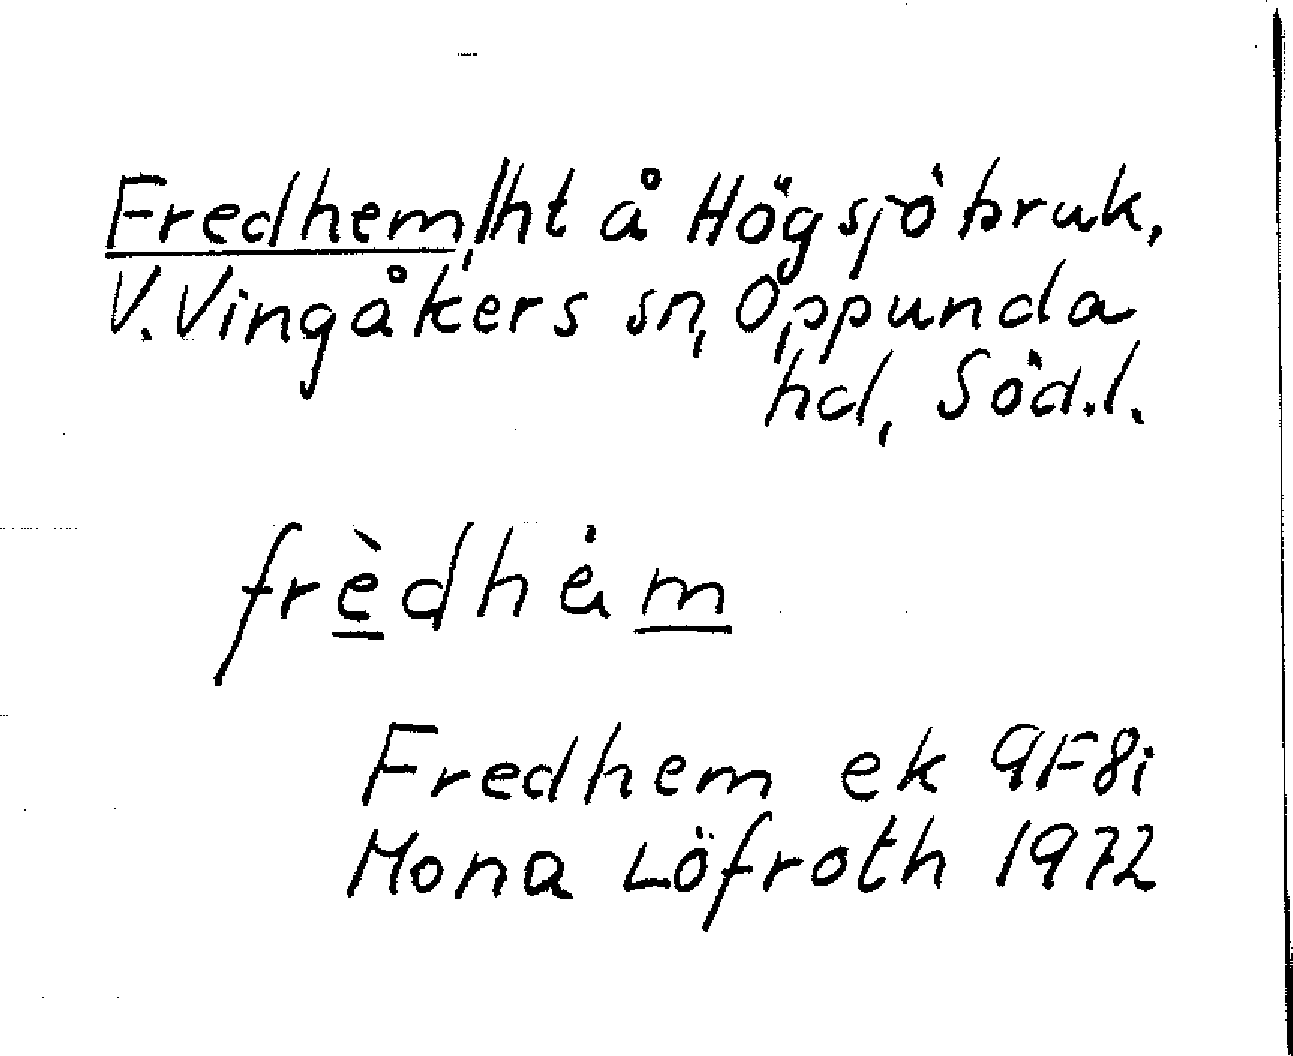 Fredhem, lht å Högsjö bruk,
V. Vingåkers sn, Oppunda
hd, Söd.l.
frèdhèm
Fredhem ek 9F8i
Mona Löfroth 1972